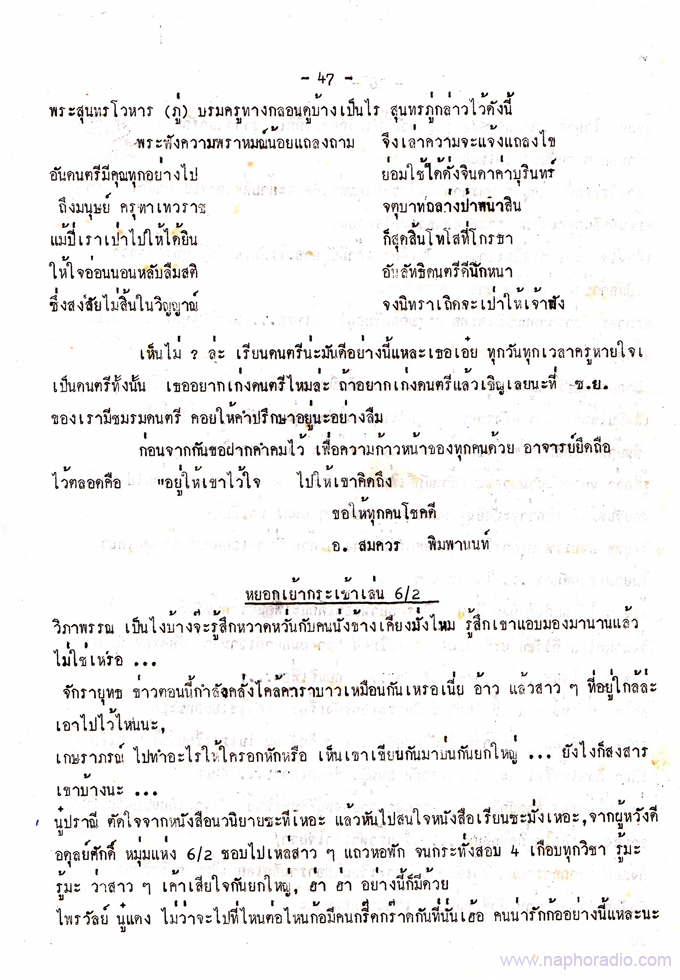 - 47 -
พระสุนทรโวหาร (ภู่) บรมครูทางกลอนดูบ้างเป็นไร สุนทรภู่กล่าวไว้ดังนี้
พระฟังความพราหมณ์น้อยแถลงถาม จึงเล่าความจะแจ้งแถลงไข
อันดนตรีมีคุณทุกอย่างไป ย่อมใช้ได้ดั่งจินดาค่าบุรินทร์
ถึงมนุษย์ ครุฑาเทวราช จตุบาทกลางป่าพนาสิน
แม้ปี่เราเป่าไปให้ได้ยิน ก็สุดสิ้นโทโสที่โกรธา
ให้ใจอ่อนนอนหลับลืมสติ อันลัทธิดนตรีดีนักหนา
ซึ่งสงสัยไม่สิ้นในวิญญาณ์ จงนิทราเถิดจะเป่าให้เจ้าฟัง
เห็นไม่ ? ล่ะ เรียนดนตรีน่ะมันดีอย่างนี้แหละเธอเอ๋ย ทุกวันทุกเวลาครูหายใจเ
เป็นดนตรีทั้งนั้น เธออยากเก่งดนตรีไหมล่ะ ถ้าอยากเก่งดนตรีแล้วเชิญเลยนะที่ ช.ย.
ของเรามีชมรมดนตรี คอยให้คำปรึกษาอยู่นะอย่างลืม
ก่อนจากกันขอฝากคำคมไว้ เพื่อความก้าวหน้าของทุกคนด้วย อาจารย์ยึดถือ
ไว้ตลอดคือ "อยู่ให้เขาไว้ใจ ไปให้เขาคิดถึง
ขอให้ทุกคนโชคดี
อ. สมควร พิมพานนท์
หยอกเย้ากระเซ้าเล่น 6/2
วิภาพรรณ เป็นไงบ้างจ๊ะรู้สึกหวาดหวั่นกับคนนั่งข้างเคียงมั่งไหม รู้สึกเขาแอบมองมานานแล้ว
ไม่ใช่เหรอ ...
จักรายุทธ ข่าวตอนนี้กำลังคลั่งไคล้คาราบาวเหมือนกันเหรอเนี่ย อ้าว แล้วสาว ๆ ที่อยู่ใกล้ล่ะ
เอาไปไว้ไหนนะ,
เกษราภรณ์ ไปทำอะไรให้ใครอกหักหรือ เห็นเขาเขียนกันมาบ่นกันยกใหญ่ ... ยังไงก็สงสาร
เขาบ้างนะ ...
นู๋ปราณี ตัดใจจากหนังสือนวนิยายซะทีเหอะ แล้วหันไปสนใจหนังสือเรียนซะมั่งเหอะ,จากผู้หวังดี
อดุลย์ศักดิ์ หมุ่มแห่ง 6/2 ชอบไปเหล่สาว ๆ แถวหอพัก จนกระทั่งสอบ 4 เกือบทุกวิชา รู้มะ
รู้มะ ว่าสาว ๆ เค้าเสียใจกันยกใหญ่, ฮ่า ฮ่า อย่างนี้ก็มีด้วย
ไพรวัลย์ นู๋แดง ไม่ว่าจะไปที่ไหนต่อไหนก้อมีคนกรี๊ดกร๊าดกันที่นั่นเฮ้อ คนน่ารักก้ออย่างนี้แหละนะ
www.naphoradio.com